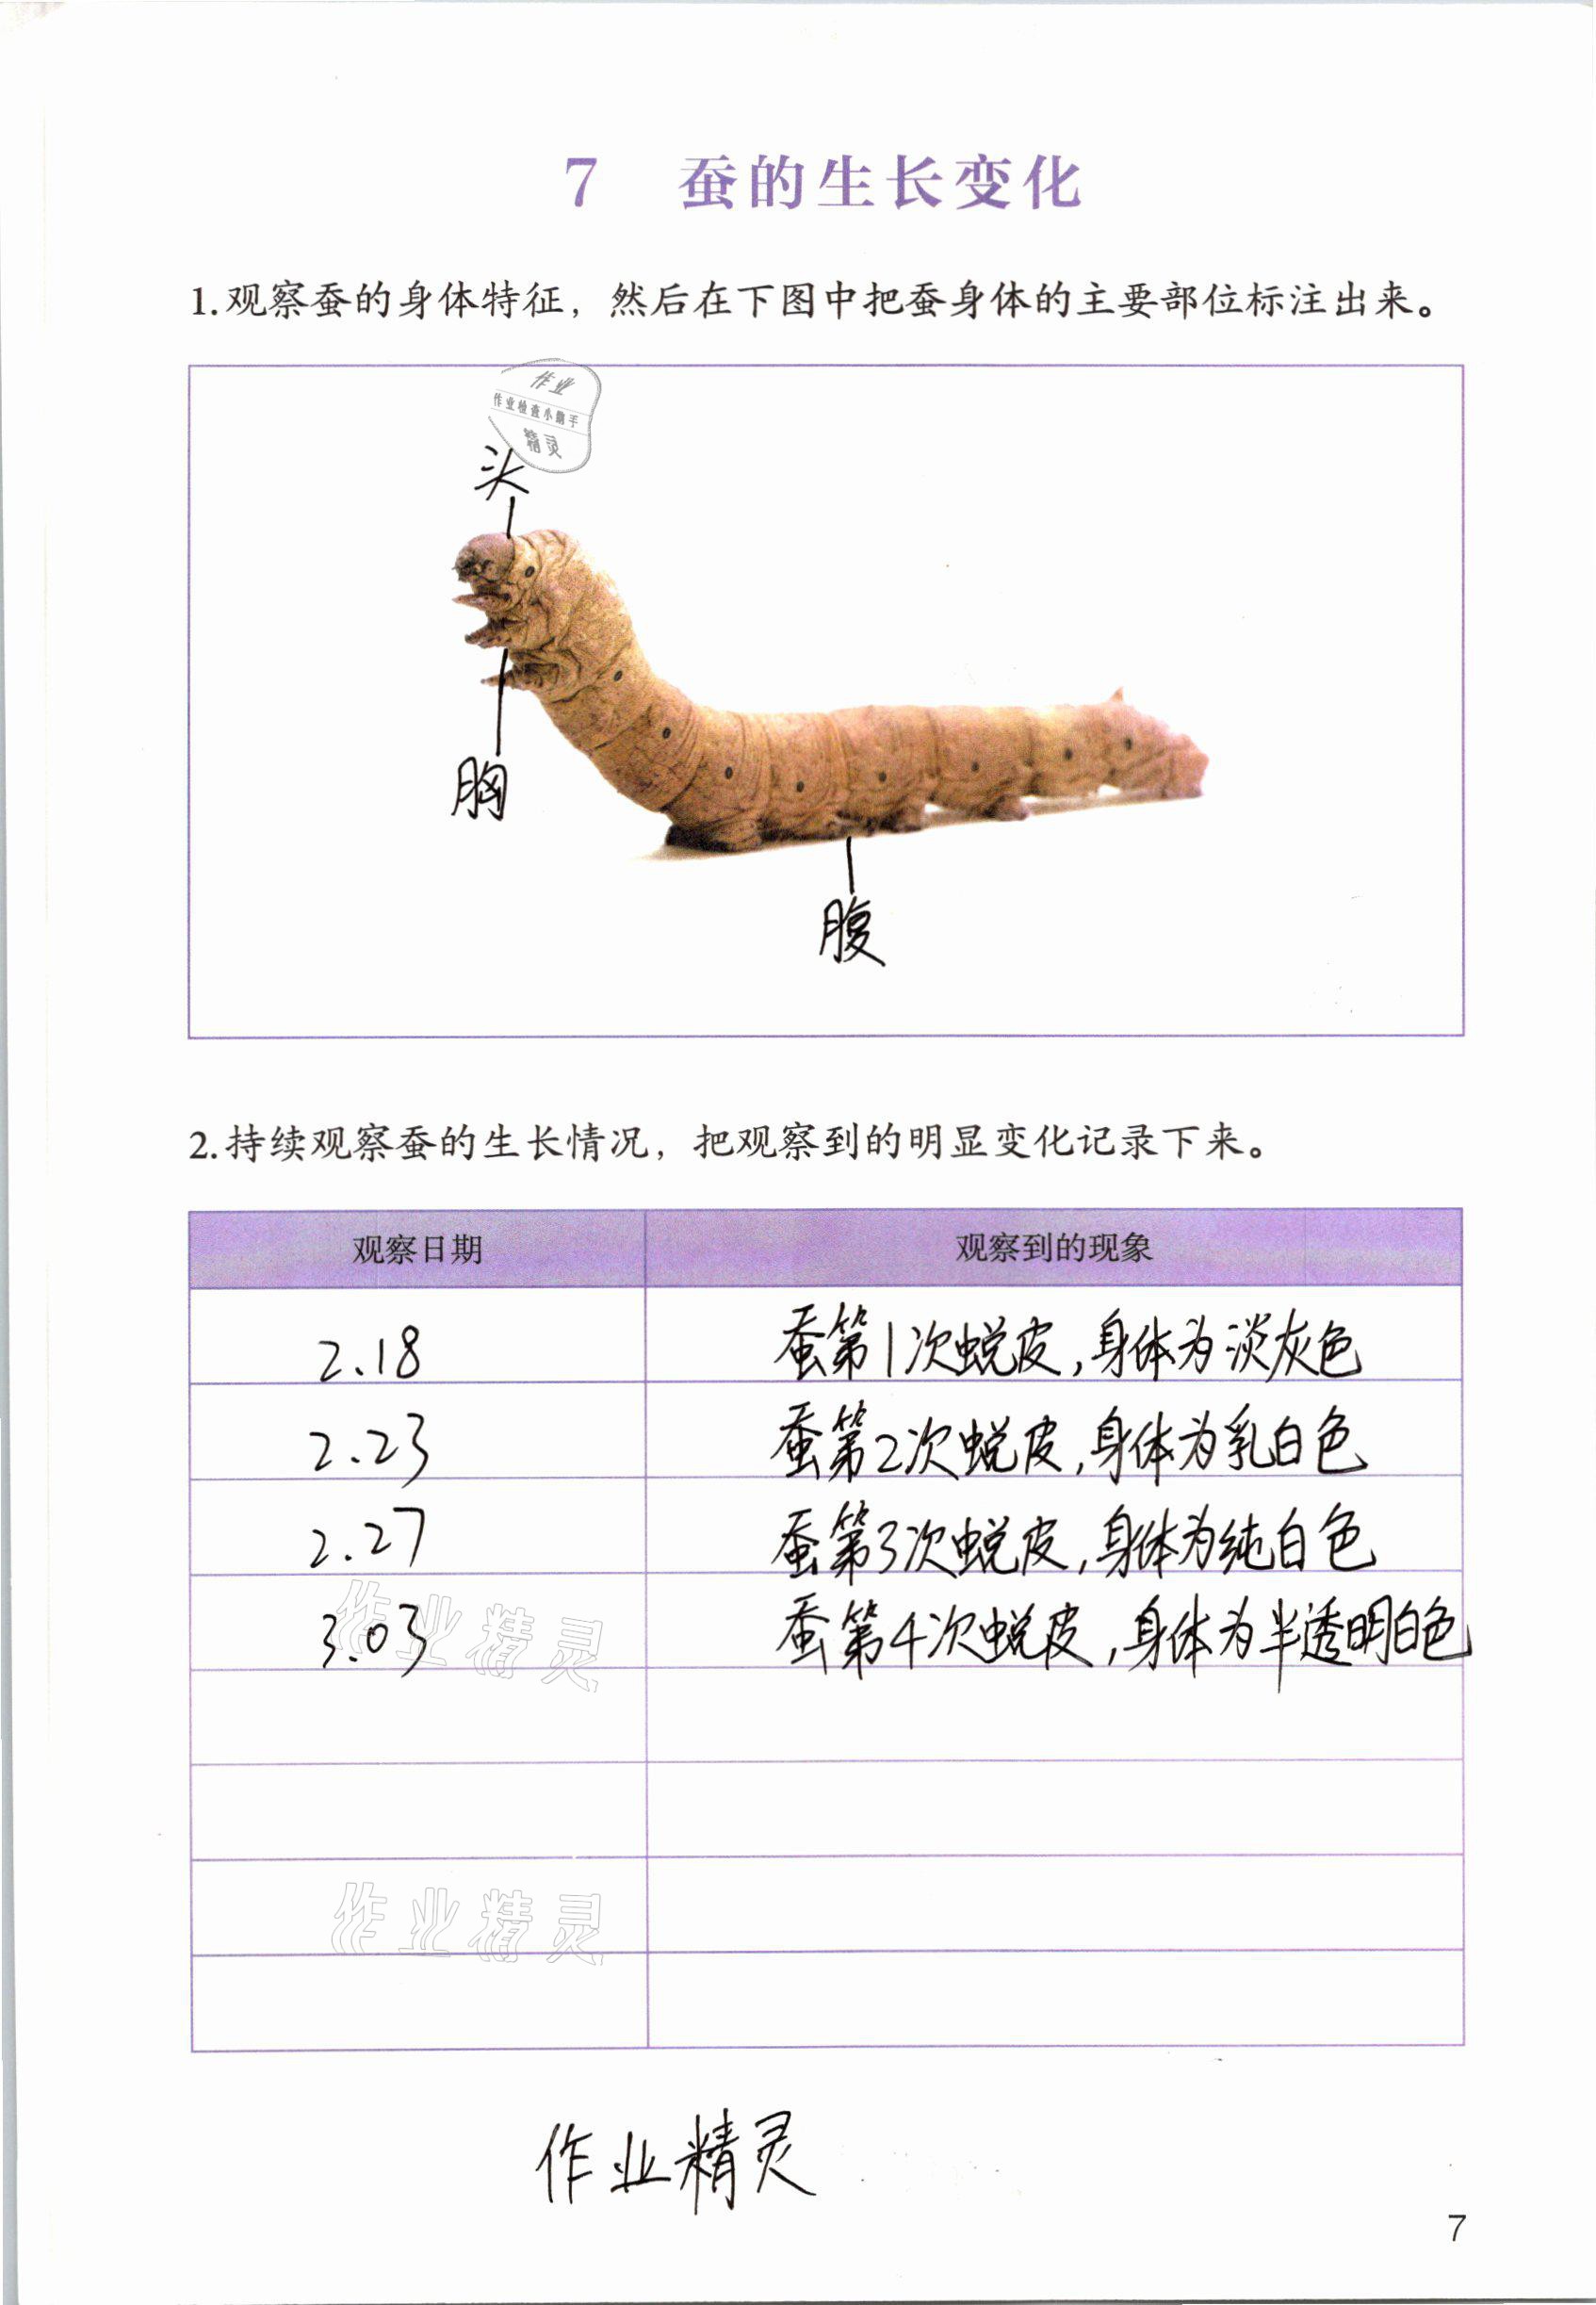 7 蚕的生长变化
1.观察蚕的身体特征，然后在下图中把蚕身体的主要部位标注出来。
作业
作业检查小助手
精灵
头
胸
腹
2.持续观察蚕的生长情况，把观察到的明显变化记录下来。
观察日期 观察到的现象
2.18 蚕第1次蜕皮，身体为淡灰色
2.23 蚕第2次蜕皮，身体为乳白色
2.27 蚕第3次蜕皮，身体为纯白色
3.03 蚕第4次蜕皮，身体为半透明白色
作业精灵
作业精灵
作业精灵
7